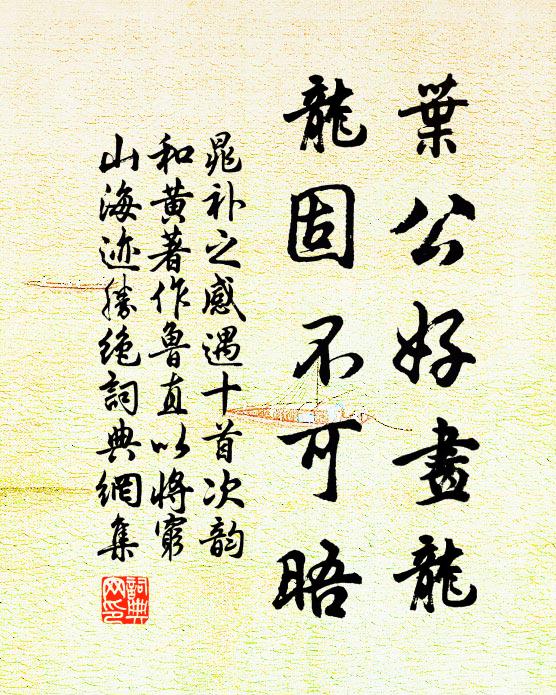 葉公好畫龍
龍固不可晤
晁补之感遇十首次韵
和黄著作鲁直以將窮
山海迹勝絶詞典網集
詞典网印